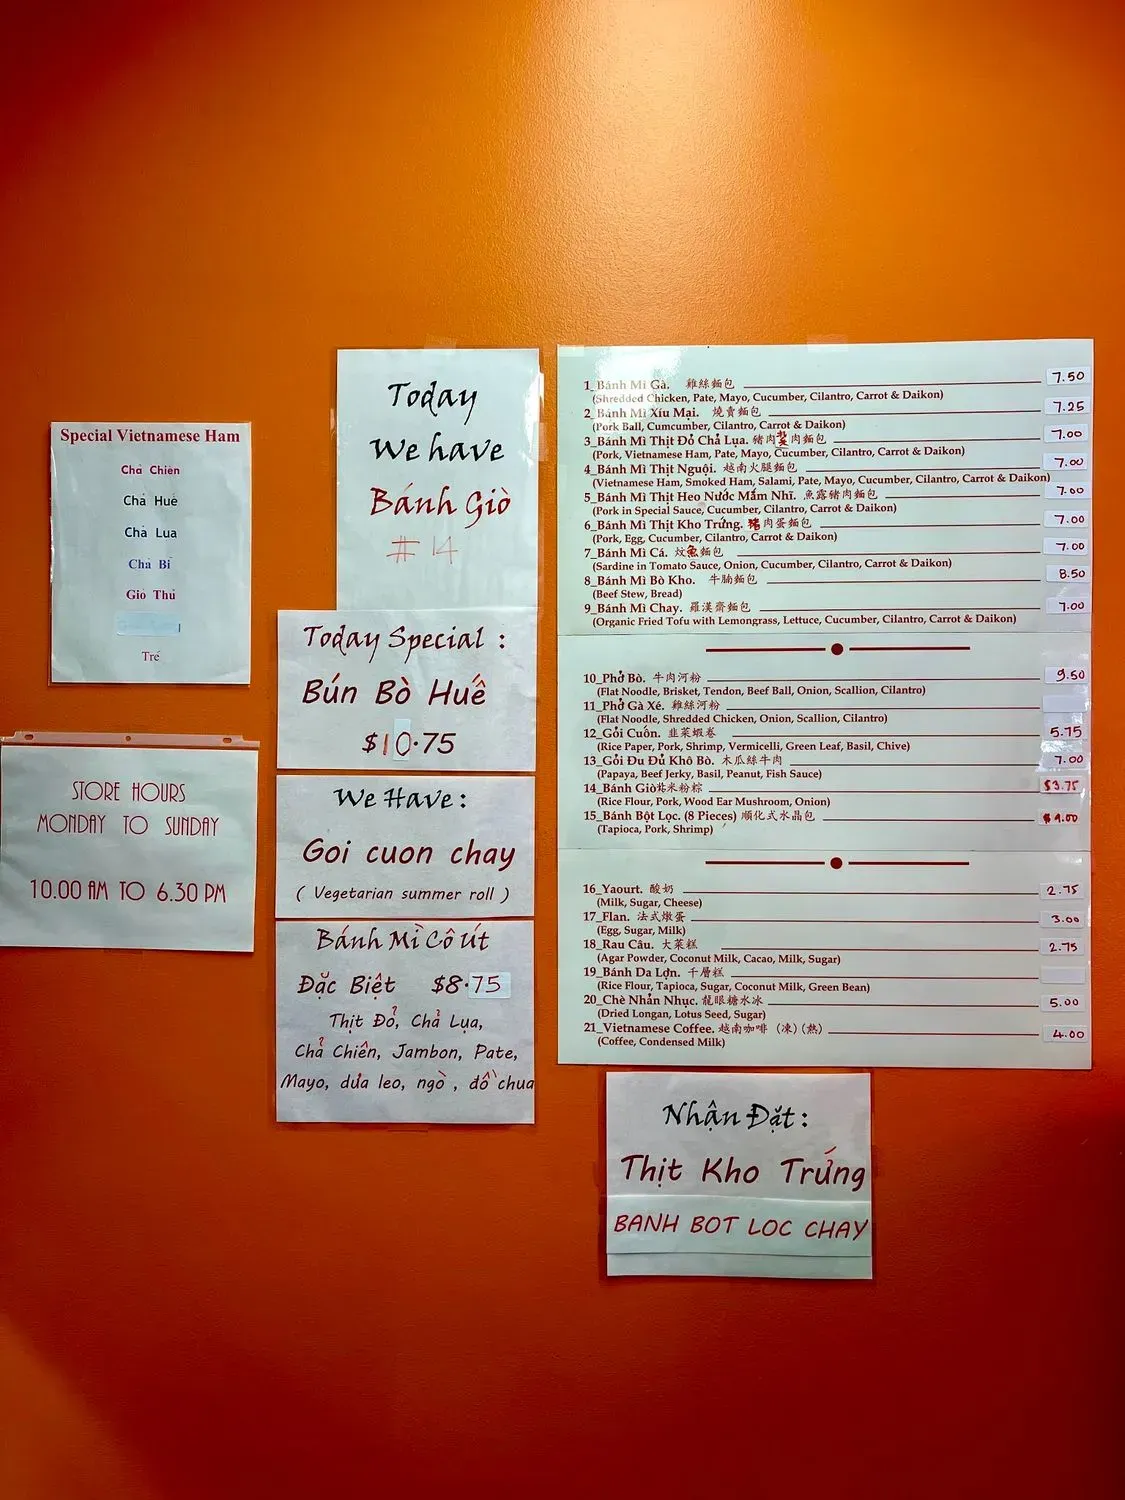 Special Vietnamese Ham
Chả Chiên
Chả Huế
Chả Lụa
Chả Bì
Giò Thủ
Tré
STORE HOURS
MONDAY TO SUNDAY
10.00 AM TO 6.30 PM
Today
We have
Bánh Giò
# 14
Today Special :
Bún Bò Huế
$10.75
We Have :
Goi cuon chay
( Vegetarian summer roll )
Bánh Mì Cô Út
Đặc Biệt $8.75
Thịt Đỏ, Chả Lụa,
Chả Chiên, Jambon, Pate,
Mayo, dưa leo, ngò , đồ chua
1_Bánh Mì Gà. 雞絲麵包 7.50
(Shredded Chicken, Pate, Mayo, Cucumber, Cilantro, Carrot & Daikon)
2_Bánh Mì Xíu Mại. 燒賣麵包 7.25
(Pork Ball, Cumcumber, Cilantro, Carrot & Daikon)
3_Bánh Mì Thịt Đỏ Chả Lụa. 豬肉紮肉麵包 7.00
(Pork, Vietnamese Ham, Pate, Mayo, Cucumber, Cilantro, Carrot & Daikon)
4_Bánh Mì Thịt Nguội. 越南火腿麵包 7.00
(Vietnamese Ham, Smoked Ham, Salami, Pate, Mayo, Cucumber, Cilantro, Carrot & Daikon)
5_Bánh Mì Thịt Heo Nước Mắm Nhĩ. 魚露豬肉麵包 7.00
(Pork in Special Sauce, Cucumber, Cilantro, Carrot & Daikon)
6_Bánh Mì Thịt Kho Trứng. 豬肉蛋麵包 7.00
(Pork, Egg, Cucumber, Cilantro, Carrot & Daikon)
7_Bánh Mì Cá. 炆魚麵包 7.00
(Sardine in Tomato Sauce, Onion, Cucumber, Cilantro, Carrot & Daikon)
8_Bánh Mì Bò Kho. 牛腩麵包 8.50
(Beef Stew, Bread)
9_Bánh Mì Chay. 羅漢齋麵包 7.00
(Organic Fried Tofu with Lemongrass, Lettuce, Cucumber, Cilantro, Carrot & Daikon)
10_Phở Bò. 牛肉河粉 9.50
(Flat Noodle, Brisket, Tendon, Beef Ball, Onion, Scallion, Cilantro)
11_Phở Gà Xé. 雞絲河粉
(Flat Noodle, Shredded Chicken, Onion, Scallion, Cilantro)
12_Gỏi Cuốn. 韭菜蝦卷 5.75
(Rice Paper, Pork, Shrimp, Vermicelli, Green Leaf, Basil, Chive)
13_Gỏi Đu Đủ Khô Bò. 木瓜絲牛肉 7.00
(Papaya, Beef Jerky, Basil, Peanut, Fish Sauce)
14_Bánh Giò 米粉粽 $3.75
(Rice Flour, Pork, Wood Ear Mushroom, Onion)
15_Bánh Bột Lọc. (8 Pieces) 順化式水晶包 $9.00
(Tapioca, Pork, Shrimp)
16_Yaourt. 酸奶 2.75
(Milk, Sugar, Cheese)
17_Flan. 法式燉蛋 3.00
(Egg, Sugar, Milk)
18_Rau Câu. 大菜糕 2.75
(Agar Powder, Coconut Milk, Cacao, Milk, Sugar)
19_Bánh Da Lợn. 千層糕
(Rice Flour, Tapioca, Sugar, Coconut Milk, Green Bean)
20_Chè Nhản Nhục. 龍眼糖水冰 5.00
(Dried Longan, Lotus Seed, Sugar)
21_Vietnamese Coffee. 越南咖啡 (凍) (熱) 4.00
(Coffee, Condensed Milk)
Nhận Đặt :
Thịt Kho Trứng
BANH BOT LOC CHAY